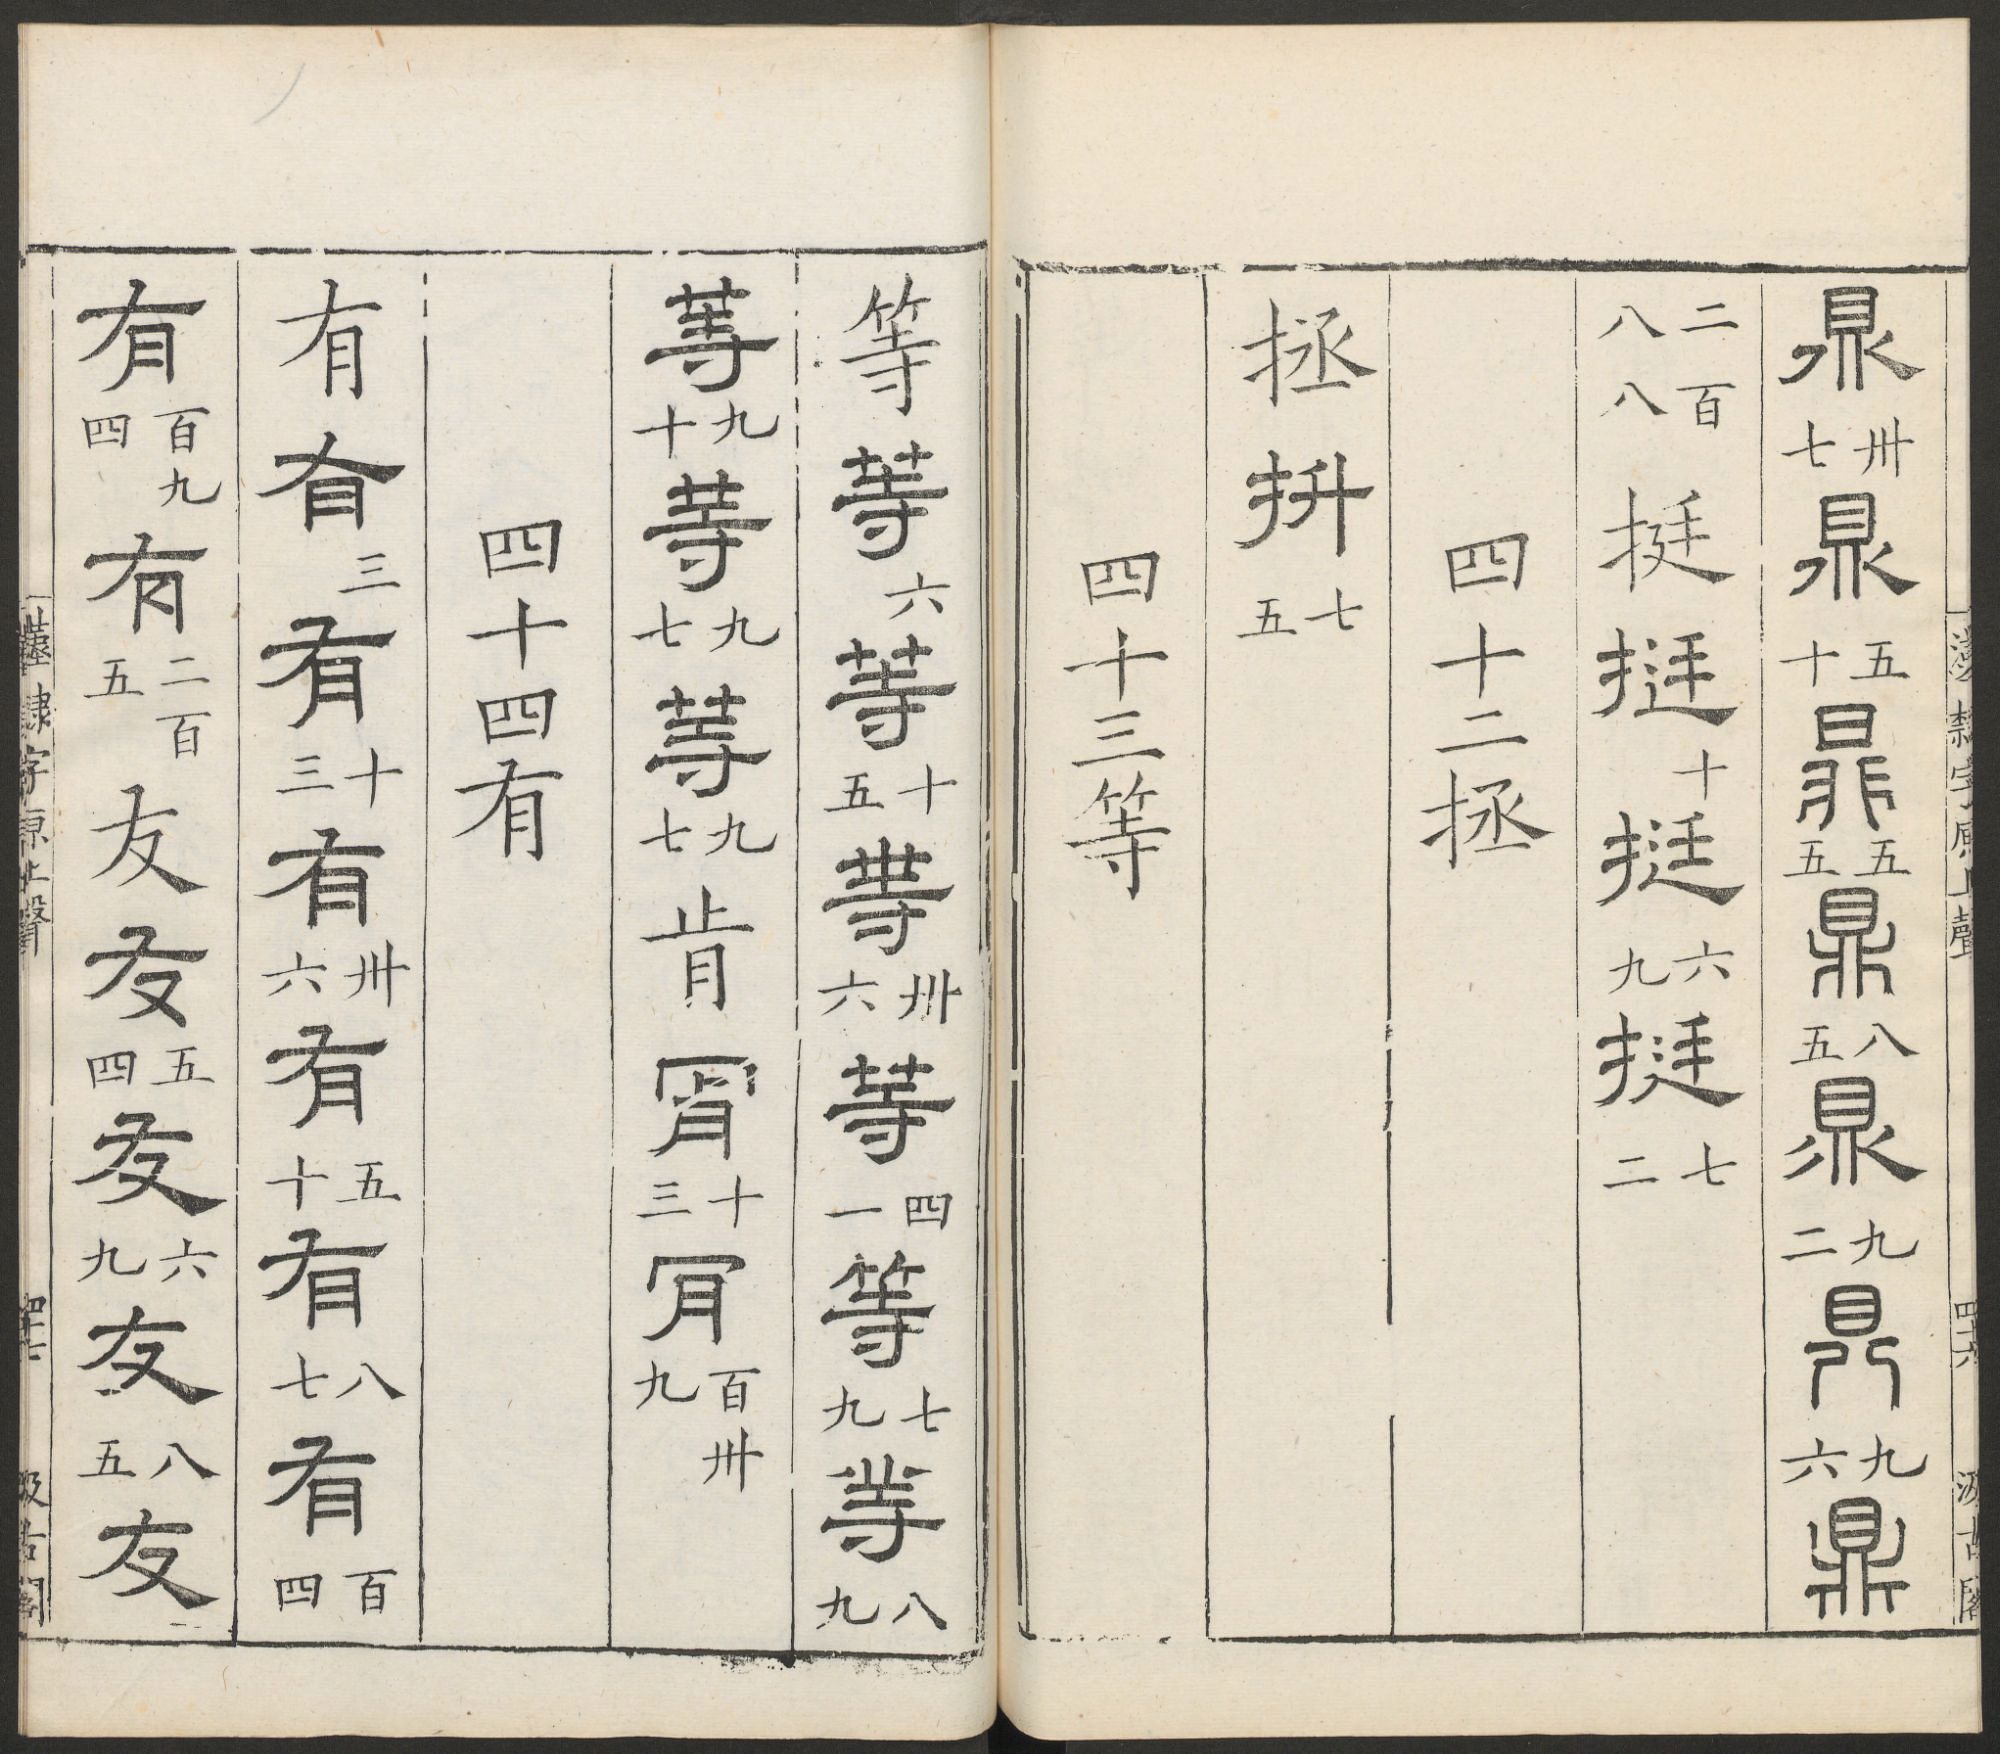 鼎卅七鼎五十鼎五五鼎八五鼎九二鼎九六鼎
二百八八挺挺十挺六九挺七二
四十二拯
拯拼七五
四十三等
漢隸字原上聲 四十六 汲古閣
等等六等十五等卅六等四一等七九等八九
等九十等九七等九七肯肎十三肎百卅九
四十四有
有有三有十三有卅六有五十有八七有百四
有百九四有二百五友友五四友六九友八五友
漢隸字原上聲 四十七 汲古閣